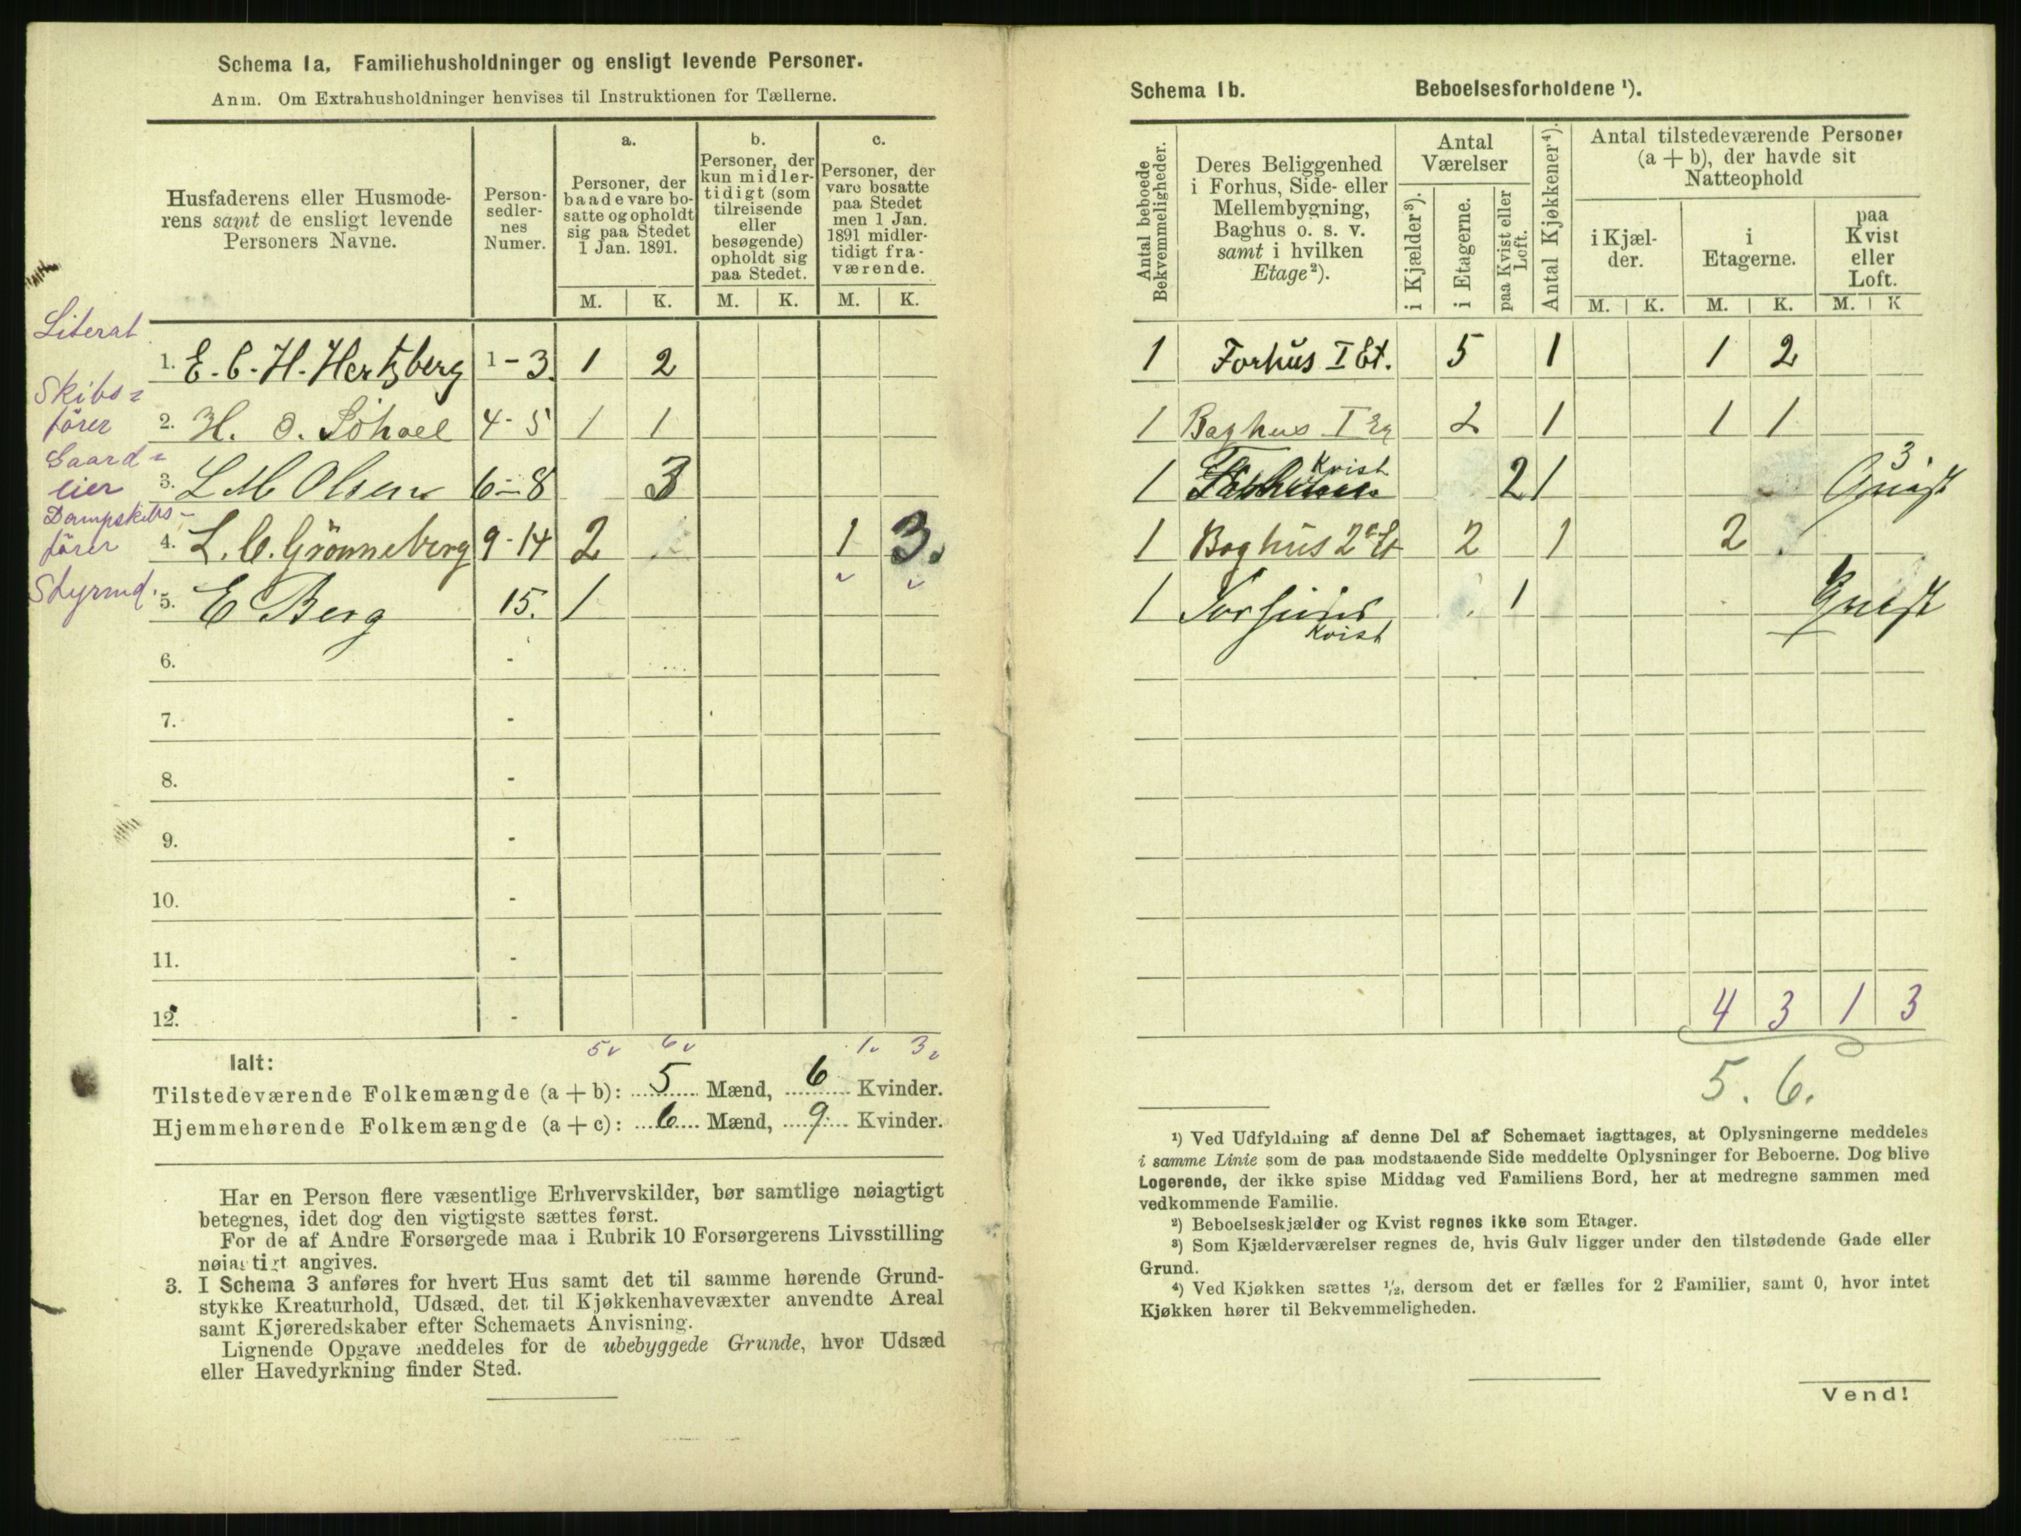 Schema 1a. Familiehusholdninger og ensligt levende Personer.
Anm. Om Extrahusholdninger henvises til Instruktionen for Tællerne.
Husfaderens eller Husmode-
rens samt de ensligt levende
Personers Navne.
Person-
sedler-
nes
Numer.
a.
Personer, der
baade vare bo-
satte og opholdt
sig paa Stedet
1 Jan. 1891.
b.
Personer, der
kun midler-
tidigt (som
tilreisende
eller
besøgende)
opholdt sig
paa Stedet.
c.
Personer, der
vare bosatte
paa Stedet
men 1 Jan.
1891 midler-
tidigt fra-
værende.
M. K. M. K. M. K.
Literat
1. E. C. H. Hertzberg 1-3. 1 2
Skibs-
fører
2. H. O. 4-5 1 1
Gaard-
eier
3. L M Olsen 6-8 3
Dampskibs-
fører
4. L. C. Grønneberg 9-14 2 1 3.
Styrmd.
5. E Berg 15. 1
6. -
7. -
8. -
9. -
10. -
11. -
12. -
5 6 1 3
Ialt:
Tilstedeværende Folkemængde (a + b): 5 Mænd, 6 Kvinder.
Hjemmehørende Folkemængde (a + c): 6 Mænd, 9 Kvinder.
Har en Person flere væsentlige Erhvervskilder, bør samtlige nøiagtigt
betegnes, idet dog den vigtigste sættes først.
For de af Andre Forsørgede maa i Rubrik 10 Forsørgerens Livsstilling
nøiagtigt angives.
3. I Schema 3 anføres for hvert Hus samt det til samme hørende Grund-
stykke Kreaturhold, Udsæd, det til Kjøkkenhavevæxter anvendte Areal
samt Kjøreredskaber efter Schemaets Anvisning.
Lignende Opgave meddeles for de ubebyggede Grunde, hvor Udsæd
eller Havedyrkning finder Sted.
Schema 1b. Beboelsesforholdene ¹).
Antal beboede
Bekvemmeligheder.
Deres Beliggenhed
i Forhus, Side- eller
Mellembygning,
Baghus o. s. v.
samt i hvilken
Etage ²).
Antal
Værelser
i Kjælder ³).
i Etagerne.
paa Kvist eller
Loft.
Antal Kjøkkener ⁴).
Antal tilstedeværende Personer
(a + b), der havde sit
Natteophold
i Kjæl-
der.
i
Etagerne.
paa
Kvist
eller
Loft.
M. K. M. K. M. K
1 Forhus I Et. 5 1 1 2
1 Baghus I 2 1 1 1
1 Kvist 2 1 3
1 Baghus 2 Et 2 1 2
1 Kvist 1
4 3 1 3
5. 6.
¹) Ved Udfyldning af denne Del af Schemaet iagttages, at Oplysningerne meddeles
i samme Linie som de paa modstaaende Side meddelte Oplysninger for Beboerne. Dog blive
Logerende, der ikke spise Middag ved Familiens Bord, her at medregne sammen med
vedkommende Familie.
²) Beboelseskjælder og Kvist regnes ikke som Etager.
³) Som Kjælderværelser regnes de, hvis Gulv ligger under den tilstødende Gade eller
Grund.
⁴) Ved Kjøkken sættes ½, dersom det er fælles for 2 Familier, samt 0, hvor intet
Kjøkken hører til Bekvemmeligheden.
Vend!